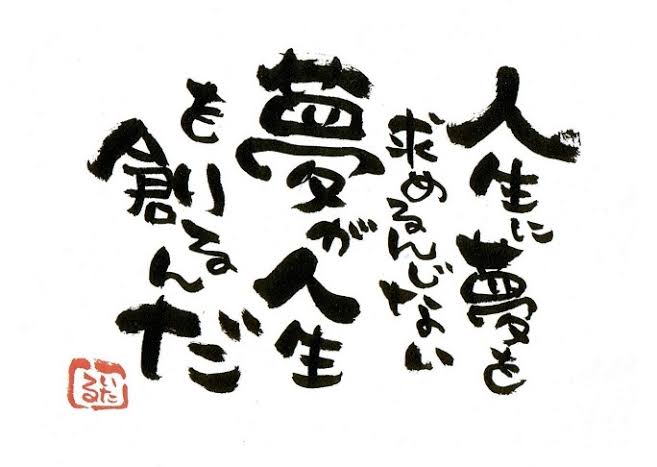 人生に夢を
求めるんじゃない
夢が人生
を創るんだ
いたる